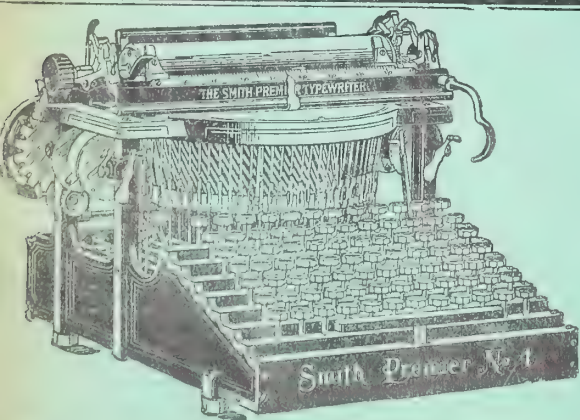 THE SMITH PREMIER TYPEWRITER
Smith Premier No. 4